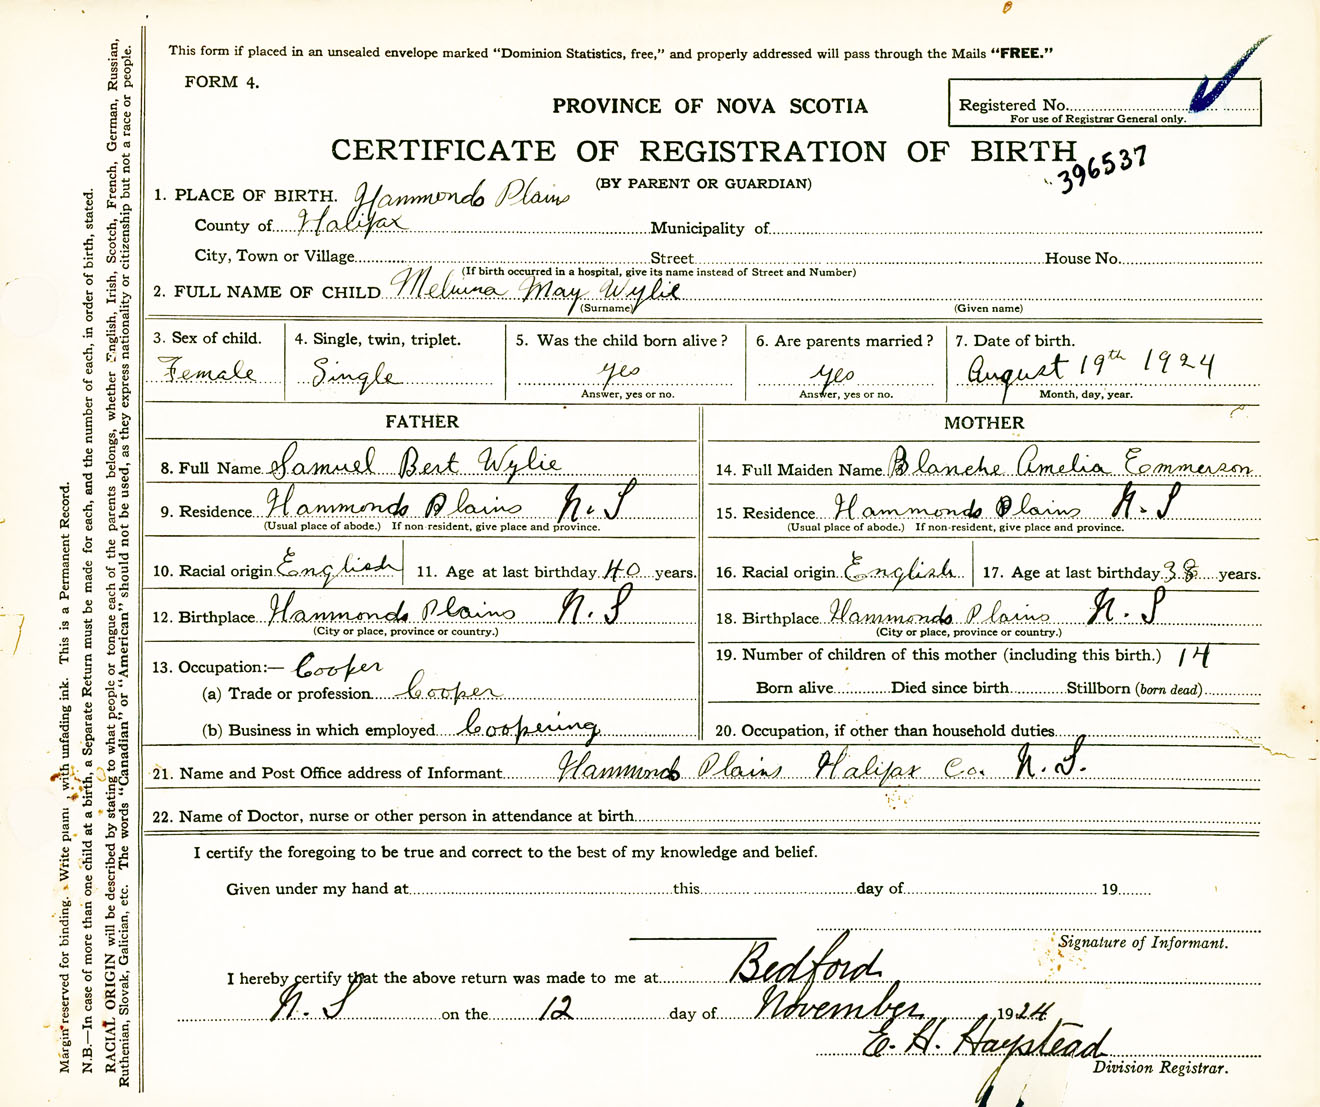 This form if placed in an unsealed envelope marked "Dominion Statistics, free," and properly addressed will pass through the Mails "FREE."
FORM 4.
PROVINCE OF NOVA SCOTIA
Registered No.
For use of Registrar General only.
CERTIFICATE OF REGISTRATION OF BIRTH
396537
(BY PARENT OR GUARDIAN)
1. PLACE OF BIRTH. Hammonds Plains
County of Halifax Municipality of
City, Town or Village Street House No.
(If birth occurred in a hospital, give its name instead of Street and Number)
2. FULL NAME OF CHILD Melvina May Wylie
(Surname) (Given name)
3. Sex of child. 4. Single, twin, triplet. 5. Was the child born alive? 6. Are parents married? 7. Date of birth.
Female Single yes yes August 19th 1924
Answer, yes or no. Answer, yes or no. Month, day, year.
FATHER MOTHER
8. Full Name Samuel Bert Wylie 14. Full Maiden Name Blanche Amelia Emmerson
9. Residence Hammonds Plains N.S 15. Residence Hammonds Plains N.S
(Usual place of abode.) If non-resident, give place and province. (Usual place of abode.) If non-resident, give place and province.
10. Racial origin English 11. Age at last birthday 40 years. 16. Racial origin English 17. Age at last birthday 38 years.
12. Birthplace Hammonds Plains N.S 18. Birthplace Hammonds Plains N.S
(City or place, province or country.) (City or place, province or country.)
13. Occupation:— Cooper 19. Number of children of this mother (including this birth.) 14
(a) Trade or profession Cooper Born alive Died since birth Stillborn (born dead)
(b) Business in which employed Coopering 20. Occupation, if other than household duties
21. Name and Post Office address of Informant Hammonds Plains Halifax Co. N.S.
22. Name of Doctor, nurse or other person in attendance at birth
I certify the foregoing to be true and correct to the best of my knowledge and belief.
Given under my hand at this day of 19
Signature of Informant.
I hereby certify that the above return was made to me at Bedford
N.S on the 12 day of November 1924
E. H. Haystead
Division Registrar.
Margin reserved for binding. Write with unfading ink. This is a Permanent Record.
N.B.—In case of more than one child at a birth, a Separate Return must be made for each, and the number of each, in order of birth, stated.
RACIAL ORIGIN will be described by stating to what people or tongue each of the parents belongs, whether English, Irish, Scotch, French, German, Russian,
Ruthenian, Slovak, Galician, etc. The words "Canadian" or "American" should not be used, as they express nationality or citizenship but not a race or people.